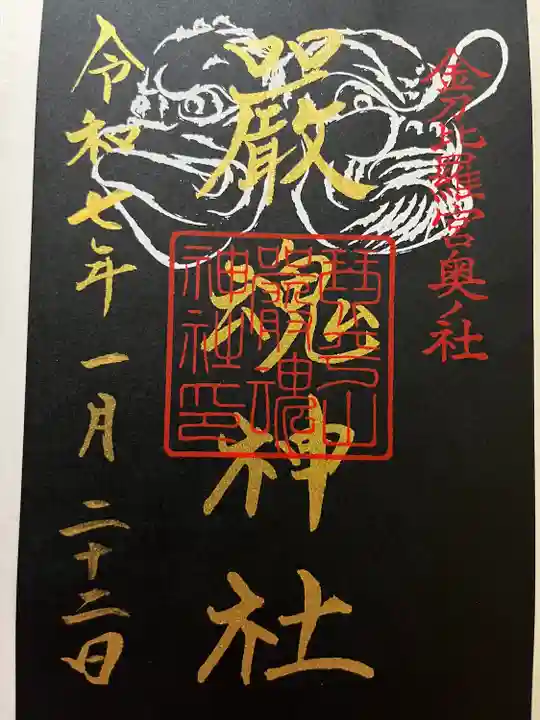 金刀比羅宮奥ノ社
嚴魂神社
琴平山
嚴魂
神社印
令和七年 一月 二十二日